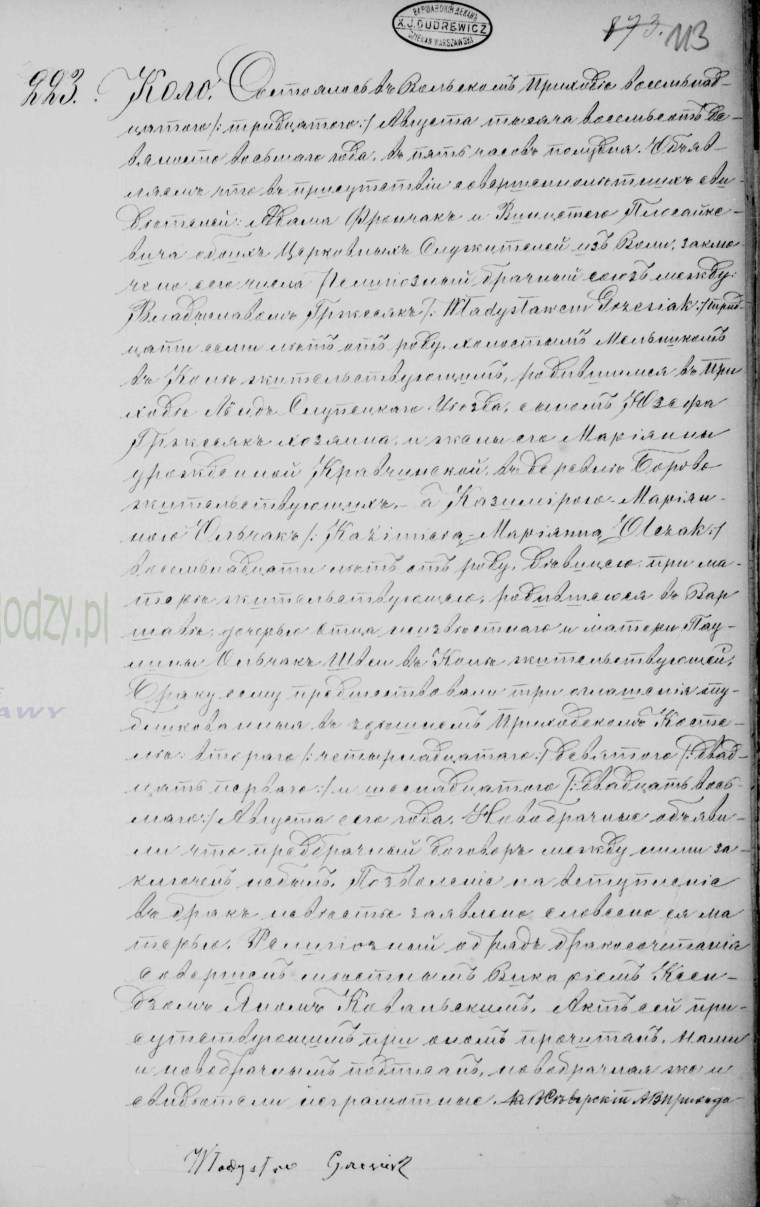 ВАРШАВСКІЙ ДЕКАНЪ
X.J. DUDREWICZ
DZIEKAN WARSZAWSKI
873. 113
223. Коло. Состоялось въ Вольскомъ Приходѣ восемьнад-
цатаго /:тридцатаго:/ Августа тысяча восемьсотъ де-
вяносто восьмаго года, въ пять часовъ полудня. Объяв-
ляемъ что въ присутствіи совершеннолѣтнихъ сви-
дѣтелей: Адама Францчакъ и Винцентего
вича обоихъ Церковныхъ Служителей изъ Воли, заклю-
чено сего числа Религіозный брачный союзъ между:
Владиславомъ Гржесякъ /: Władysławem Grzesiak:/ трид-
цати семи лѣтъ отъ роду, холостымъ Мельникомъ
въ Колѣ жительствующимъ, родившимся въ При
ходѣ Лёндъ Слупецкаго Уѣзда, сыномъ Юзефа
Гржесякъ хозяина, и жены его Маріянны
урожденной Кравчинской, въ деревнѣ Борово
жительствующихъ. – а Казимірою-Маріян-
ною Ольчакъ /: Kazimierą-Maryanną Olczak:/
восемьнадцати лѣтъ отъ роду, дѣвицею, при ма-
терѣ жительствующею, родившеюся въ Вар
шавѣ, дочерью отца неизвѣстнаго и матери Пау-
лины Ольчакъ Швеи въ Колѣ жительствующей.
Браку сему предшествовали три оглашенія пу-
бликованныя въ здѣшнемъ Приходскомъ Косте-
лѣ: втораго /:четырнадцатаго:/ девятого /:двад-
цать перваго:/ и шеснадцатого /:двадцать вось-
маго:/ Августа сего года. Новобрачные объяви-
ли что предбрачный договоръ между ними за-
ключенъ небылъ. Позволеніе на вступленіе
въ бракъ невѣсты заявлено словесно ея ма
терью. Религіозный обрядъ бракосочетанія
совершенъ мѣстнымъ Викаріемъ Ксен-
дзомъ Яномъ Ковальскимъ. Актъ сей при-
сутствующимъ при ономъ прочитанъ, нами
и новобрачнымъ подписанъ, новобрачная же и
свидѣтели неграмотные.
Władysław Grzesiak
lodzy.pl
AWY